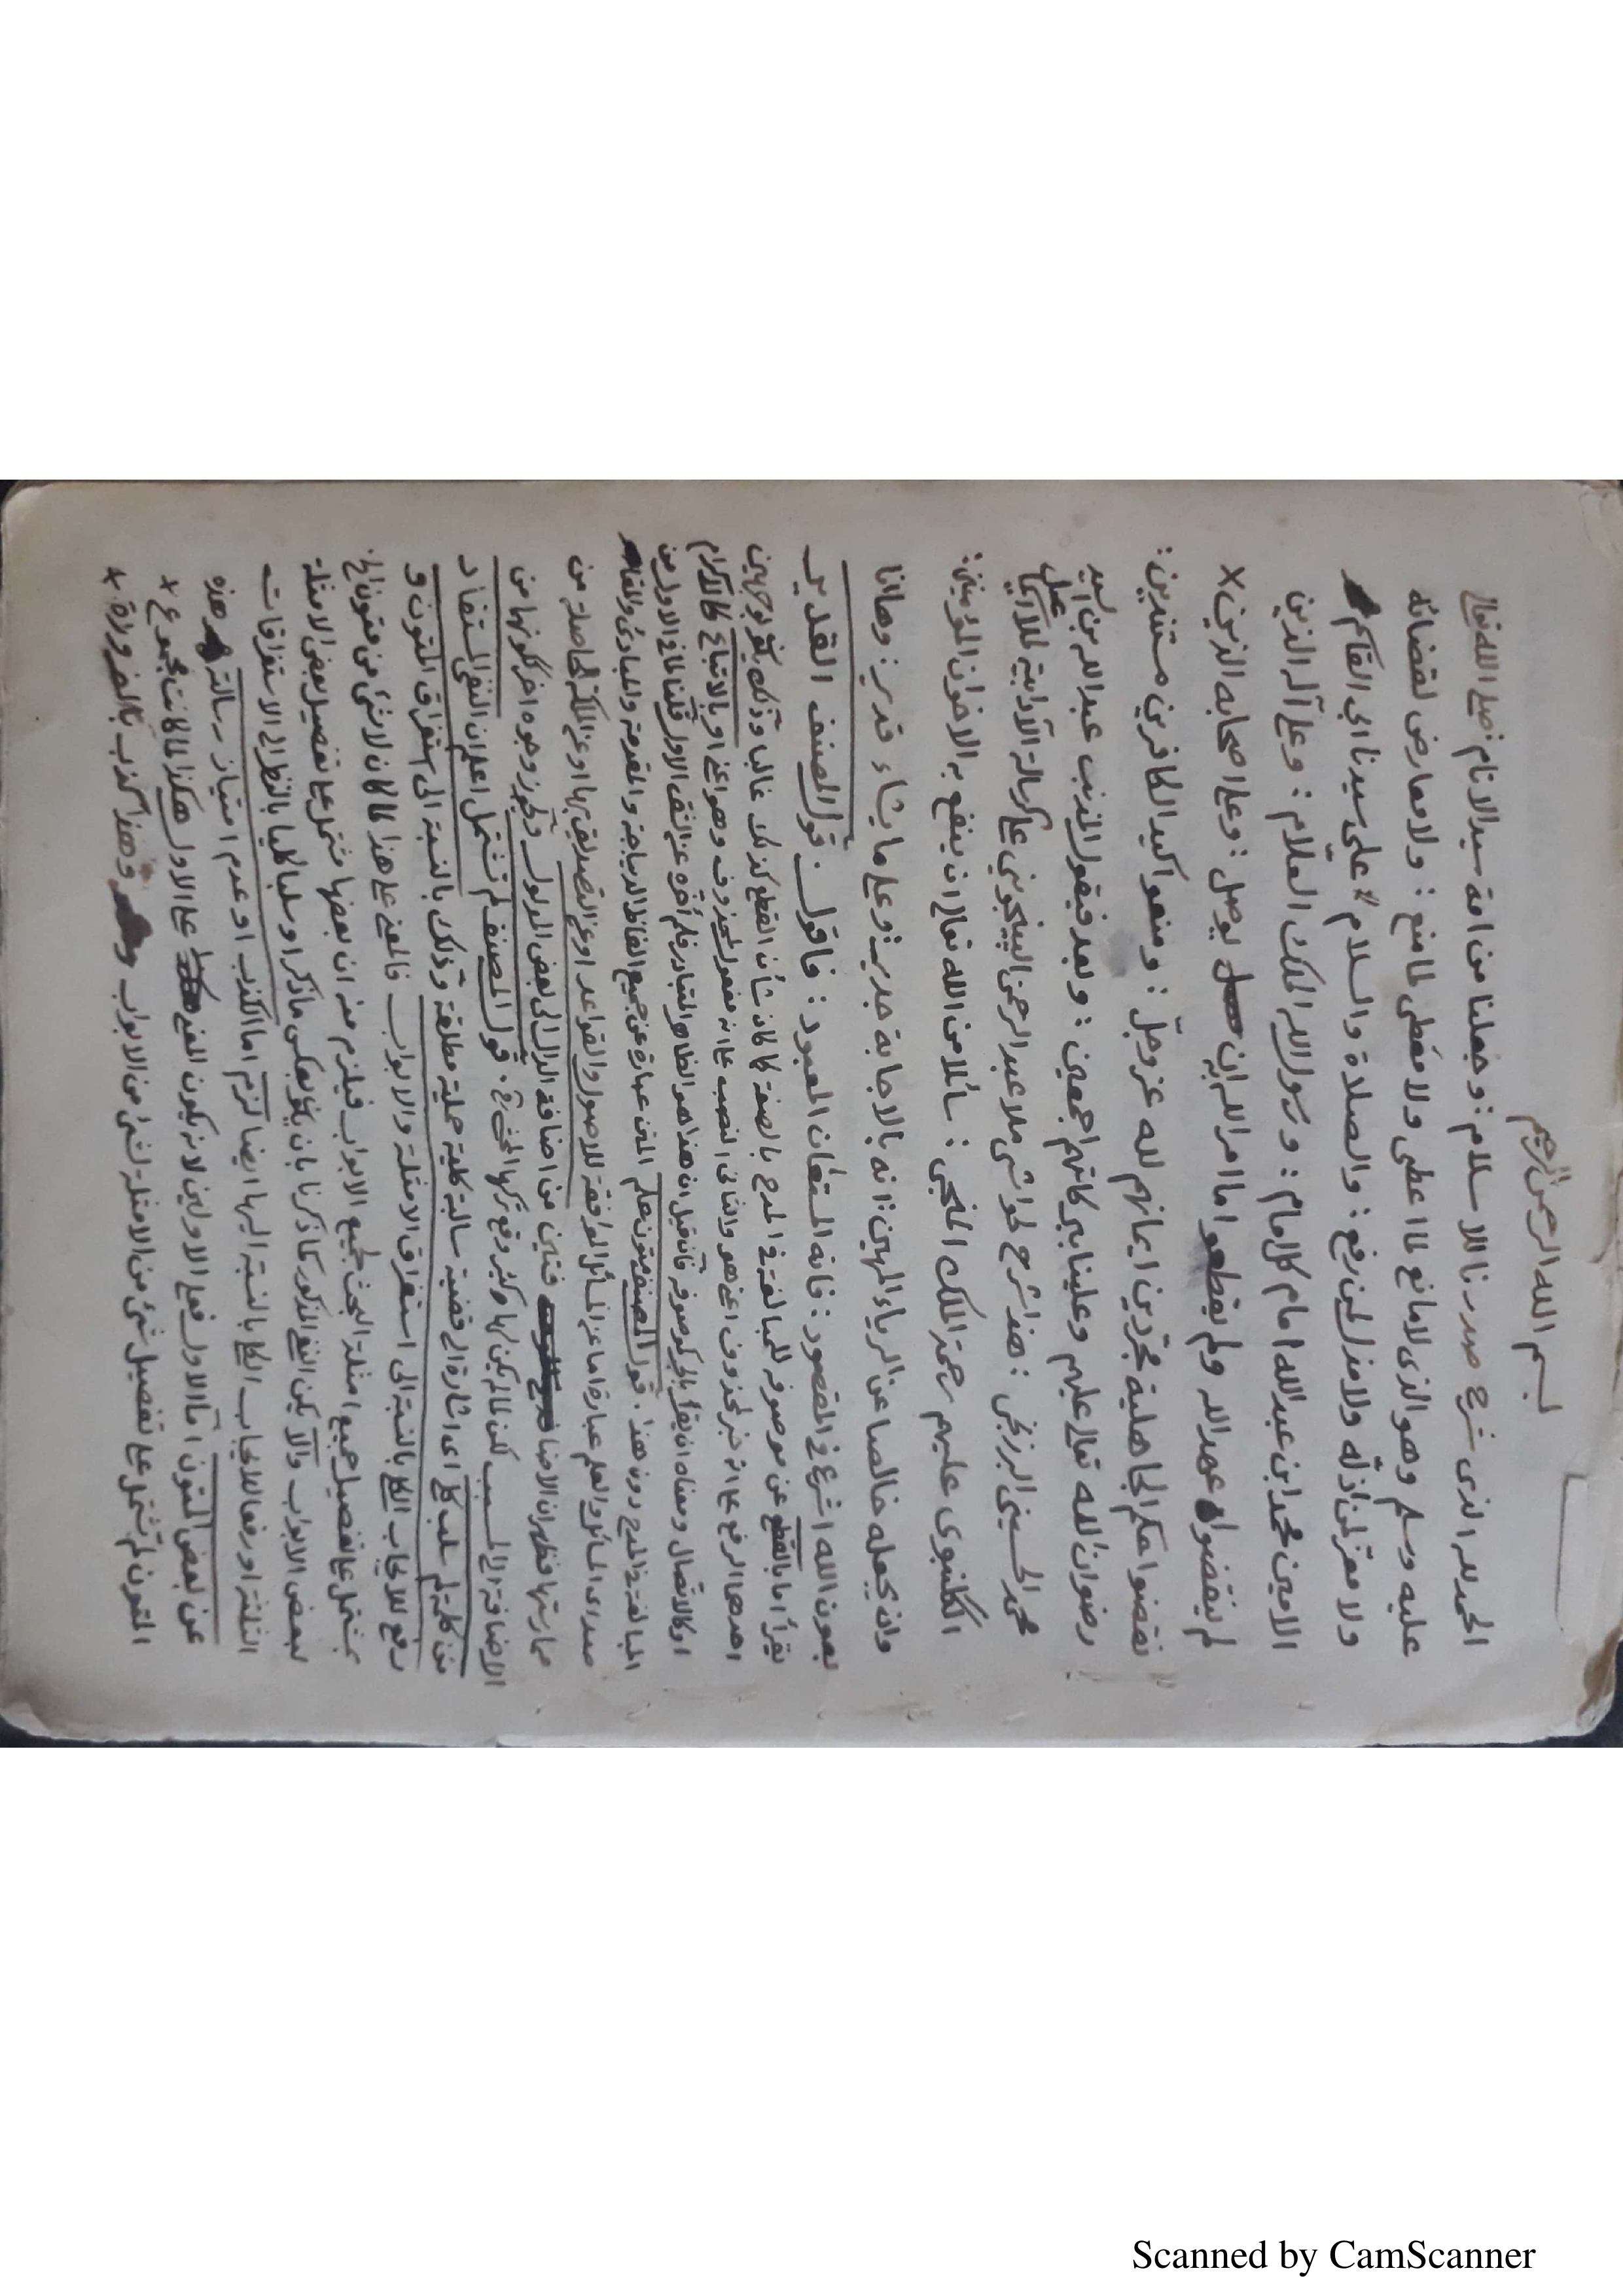 بسم الله الرحمن الرحيم
الحمد لله الذى شرح صدرنا للاسلام: وجعلنا من امة سيد الانام: صلى الله تعالى
عليه وسلم وهو الذى لا مانع لما اعطى ولا معطى لما منع: ولا معارض لقضائه
ولا معز لمن اذله ولا مذل لمن رفع: والصلاة والسلام على سيدنا ابى القاسم
الامين محمد ابن عبدالله امام كل امام: ورسول الله الملك العلام: وعلى آله الذين
لم ينقضوا عهد الله ولم يقطعوا ما امر الله به ان يوصل: وعلى اصحابه الذين ×
نقضوا حكم الجاهلية مجردين ايمانهم لله عز وجل: ومنعوا كيد الكافرين مستندين:
رضوان الله تعالى عليهم وعلينا ببركاتهم اجمعين: وبعد فيقول المذنب عبدالله بن السيد
محمد الحسينى البرزنجى: هذا شرح لحواشى ملا عبدالرحمن الپينجوينى على رسالة الآدابية
الكلنبوى عليهم رحمة الملك المنجى: سائلا من الله تعالى ان ينفع به الاخوان المؤمنين:
وان يجعله خالصا عن الرياء المهين: انه بالاجابة جدير: وعلى ما يشاء قدير: وها انا
بعون الله اشرع فى المقصود: فانه المستعان المعبود: فاقول. قول المصنف القدير
يقرأ اما بالقطع عن موصوفه للمبالغة فى المدح بالصفة كما كان شأن القطع كذلك غالبا وذلك بوجهين
احدهما الرفع على انه خبر لمحذوف اعنى هو والثانى النصب على انه مفعول لمحذوف وهو اعنى او بالاتباع
او كالاتصال ومعناه ان يقرأ بالجر كموصوفه فان قيل ان هذا هو الظاهر المتبادر فلم اخره عن الشق الاول قلنا لما فى الاول من
المبالغة فى المدح دون هذا. قول المصنف متون علم المتن عبارة عن جميع الفاظ الديباجة والمقدمة والمبادى والمقاصد
سوى المسائل والعلم عبارة اما عن المسائل الموافقة للاصول والقواعد او عن التصديق بها او عن الملكة الحاصلة من
ممارستها فظهر ان الاضافة من اضافة الدال الى بعض المدلول ويجوز وجوه اخر ككونها من
الاضافة الى المسبب لكن لما لم يكن لها وقع تركها المحشى. قول المصنف لم تشتمل اعلم ان النفى المستفاد
من كلمة لم سلب كل اى اشارة الى قضية سالبة كلية حملية مطلقة وذلك بالنسبة الى استغراق المتون و
رفع للايجاب الكلى بالنسبة الى استغراق الامثلة والابواب فالمعنى على هذا لما كان لا شئ من متون الخ
بمشتمل على تفصيل جميع امثلة البحث لجميع الابواب فيلزم منه ان بعضها مشتمل على تفصيل بعض الامثلة
لبعض الابواب والا لم يكن النفى المذكور كما ذكرنا بان يكون بعكس ما ذكر او سلبا كليا بالنظر الى الاستغراقات
الثلثة او رفعا للايجاب الكلى بالنسبة اليها ايضا لزم اما الكذب او عدم امتياز رسالته هذه
عن بعض المتون اما الاول فعلى الاولين لانه يكون المعنى على الاول هكذا لما كانت مجموع ×
المتون لم تشتمل على تفصيل شئ من الامثلة لشئ من الابواب وهذا كذب بالضرورة ×